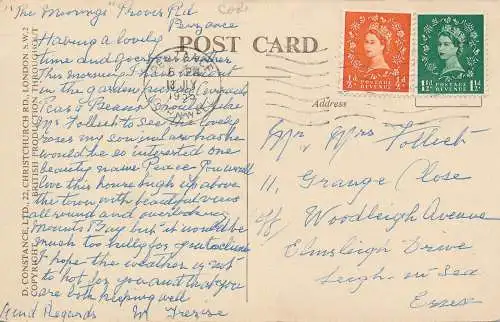 "The Moorings" Trover Rd.
Penzance
Having a lovely
time and
This morning I have
in the garden picking
Peas & Beans should like
Mr Follich to see the lovely
roses my son in law has he
would be so interested one
beauty name Peace You would
love this house high up above
the town with beautiful views
all round and overlooking
Mounts Bay but it would be
much too hilly for
I hope the weather is not
to hot for you and that you
are both keeping well
Kind Regards M Trezise
POST CARD
Address
D. CONSTANCE, LTD., 22, CHRISTCHURCH RD., LONDON, S.W.2
COPYRIGHT BRITISH PRODUCTION THROUGHOUT
PENZANCE
13 JLY
1959
½D POSTAGE REVENUE ½D
1½D POSTAGE REVENUE 1½D
Mr Mrs Follich
11, Grange Close
off Woodleigh Avenue
Elmsleigh Drive
Leigh on Sea
Essex